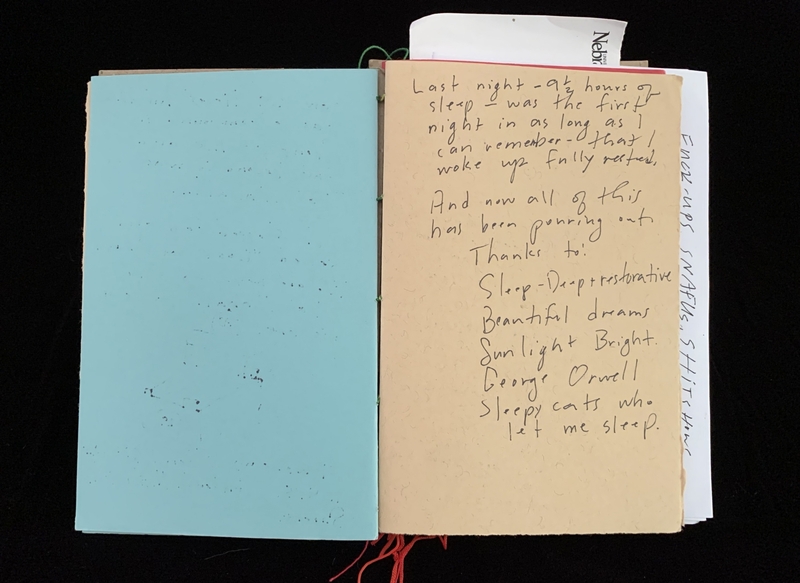 Last night - 9½ hours of
sleep - was the first
night in as long as I
can remember - that I
woke up fully rested.
And now all of this
has been pouring out.
Thanks to:
Sleep - Deep + restorative
Beautiful dreams
Sunlight Bright.
George Orwell
Sleepy cats who
let me sleep.
Nebr
SNAFUs, SHITSHOWS